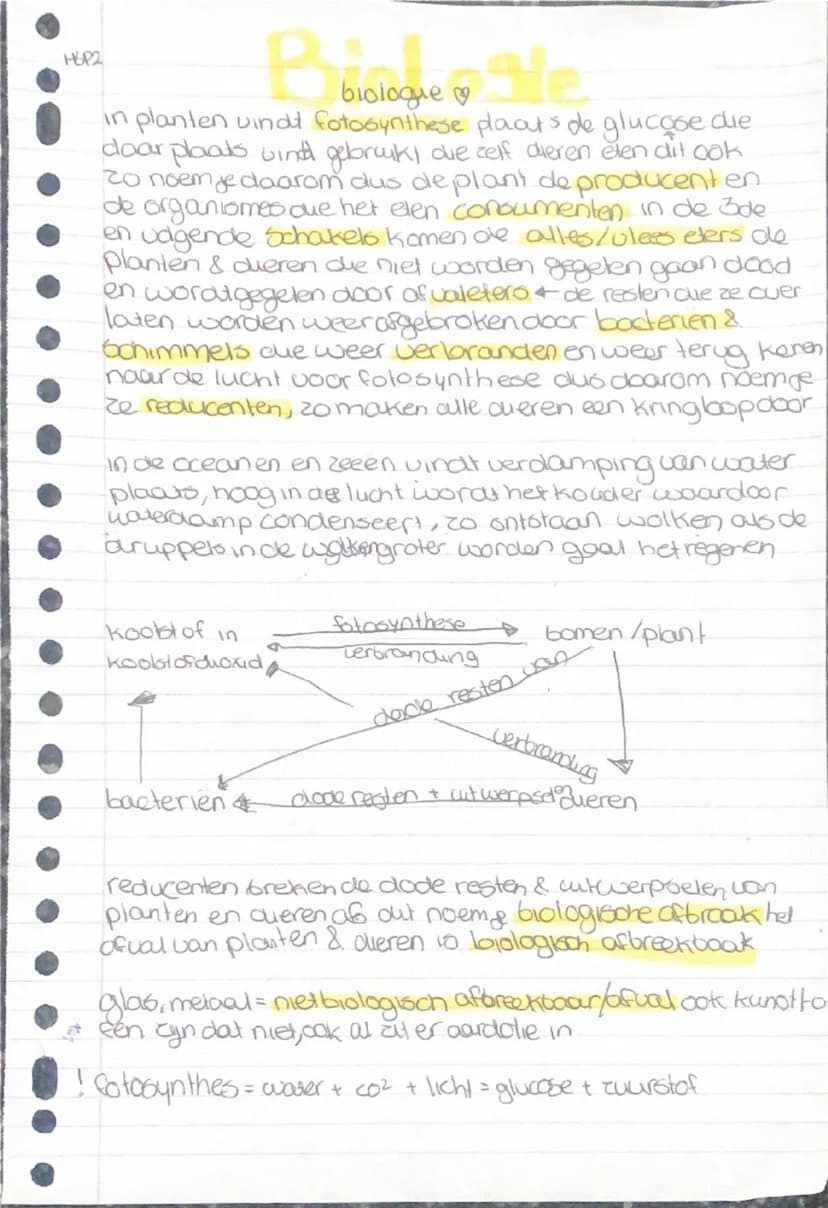 H6P2
Biologie
biologie ♡
in planten vindt fotosynthese plaats de glucose die
daar plaats vindt gebruikt die zelf dieren eten dit ook
zo noem je daarom dus de plant de producent en
de organismes die het eten consumenten in de 3de
en volgende schakels komen de alles/vlees eters de
planten & dieren die niet worden gegeten gaan dood
en wordt gegeten door afvaleters ← de resten die ze over
laten worden weer afgebroken door bacteriën &
schimmels die weer verbranden en weer terug keren
naar de lucht voor fotosynthese dus daarom noem je
ze reducenten, zo maken alle dieren een kringloop door
in de oceanen en zeeën vindt verdamping van water
plaats, hoog in de lucht wordt het kouder waardoor
waterdamp condenseert, zo ontstaan wolken als de
druppels in de wolken groter worden gaat het regenen
koolstof in fotosynthese bomen/plant
koolstofdioxid verbranding
dode resten van
verbranding
bacteriën dode resten + uitwerpselen dieren
reducenten breken de dode resten & uitwerpselen van
planten en dieren af dit noem je biologische afbraak het
afval van planten & dieren is biologisch afbreekbaak
glas, metaal = niet biologisch afbreekbaar/afval ook kunststo
een zijn dat niet, ook al zit er aardolie in
! fotosynthes = water + co² + licht = glucose + zuurstof